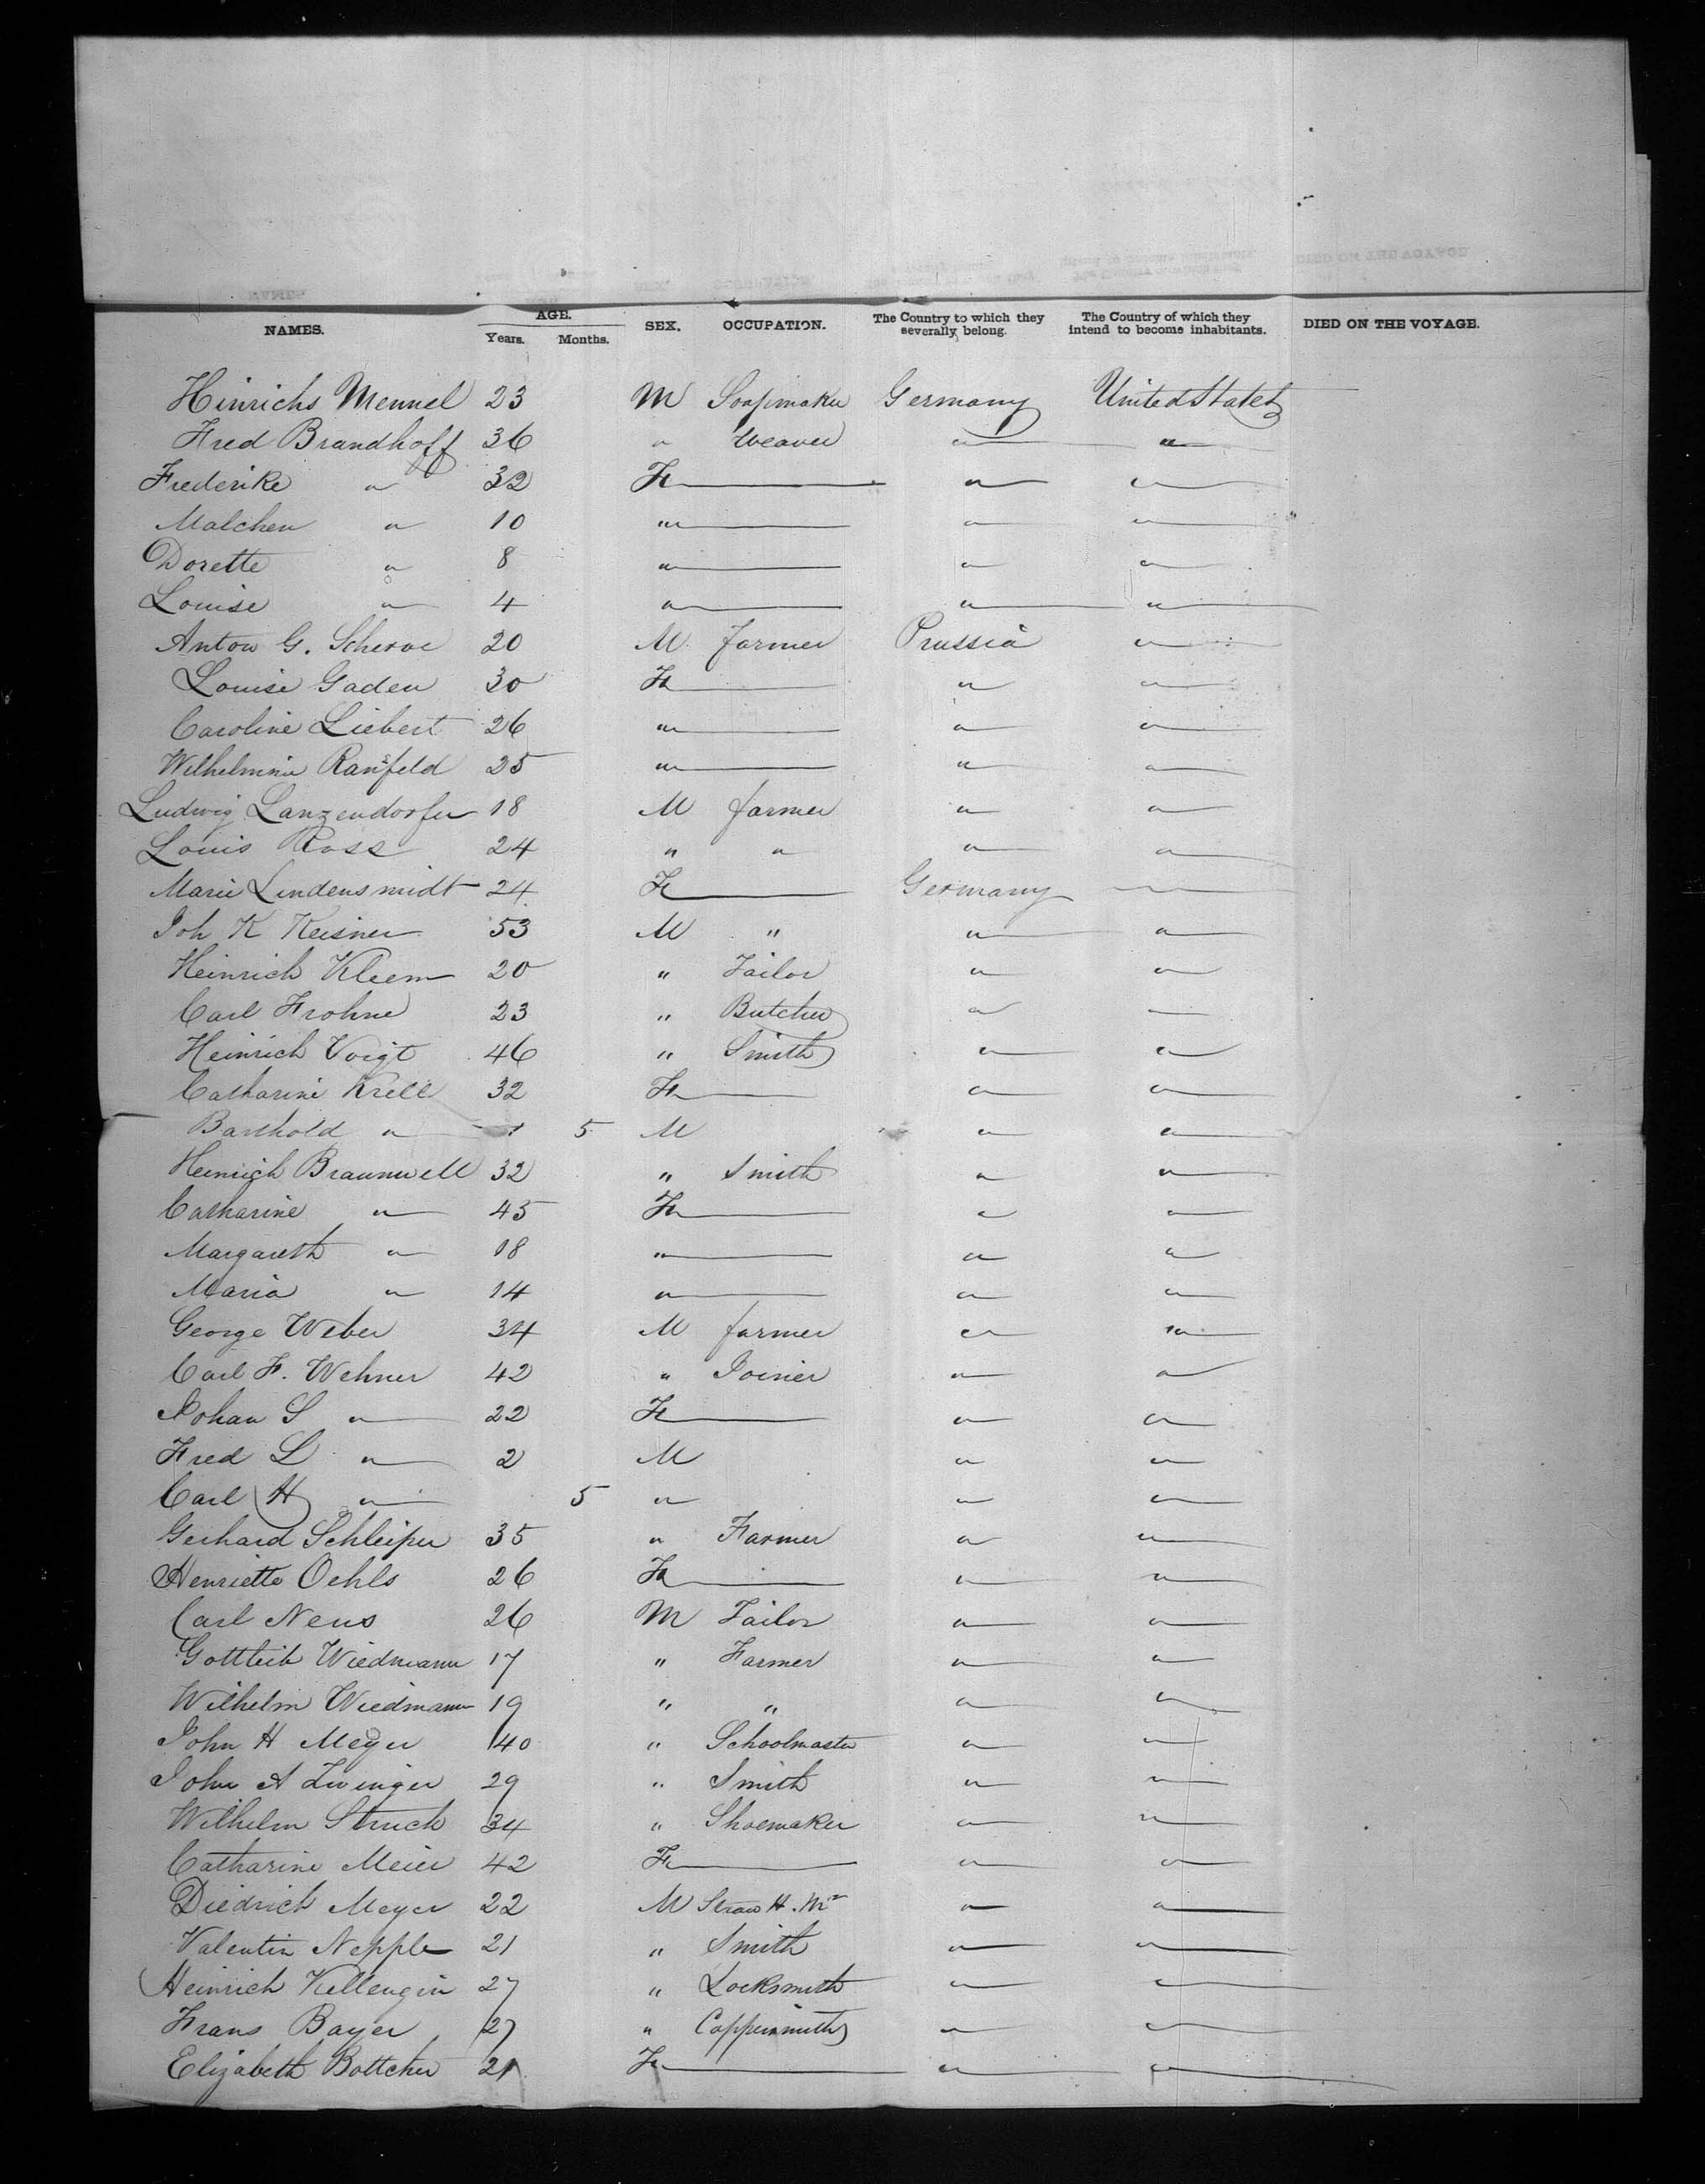 NAMES. AGE. Years. Months. SEX. OCCUPATION. The Country to which they severally belong. The Country of which they intend to become inhabitants. DIED ON THE VOYAGE.
Hinrichs Mennel 23 M Soapmaker Germany United States
Fred Brandhoff 36 " Weaver " "
Frederike " 32 F " "
Malchen " 10 " " "
Dorette " 8 " " "
Louise " 4 " " "
Anton G. 20 M farmer Prussia "
Louise Gaden 30 F " "
Caroline Liebert 26 " " "
Wilhelmine Ransfeld 25 " " "
Ludwig Lanzendorfer 18 M farmer " "
Louis Ross 24 " " " "
Marie Lindensmidt 24 F Germany "
Joh K Keisner 53 M " " "
Heinrich Kleem 20 " Tailor " "
Carl Frohne 23 " Butcher " "
Heinrich Voigt 46 " Smith " "
Catharine Krell 32 F " "
Barthold " 1 5 M " "
Heinrich Braunwell 32 " Smith " "
Catharine " 45 F " "
Margareth " 18 " " "
Maria " 14 " " "
George Weber 34 M farmer " "
Carl F. Wehner 42 " Joiner " "
Johan S " 22 F " "
Fred L " 2 M " "
Carl H " 5 " " "
Gerhard Schleiper 35 " Farmer " "
Henriette Oehls 26 F " "
Carl Neus 26 M Tailor " "
Gottleib Wiedmann 17 " Farmer " "
Wilhelm Wiedmann 19 " " " "
John H Meyer 40 " Schoolmaster " "
John A Zwinger 29 " Smith " "
Wilhelm Struck 34 " Shoemaker " "
Catharine Meier 42 F " "
Diedrich Meyer 22 M Straw H. Mr " "
Valentin Nepple 21 " Smith " "
Heinrich Kellengin 27 " Locksmith " "
Frans Bayer 27 " Coppersmith " "
Elizabeth Bottcher 21 F " "